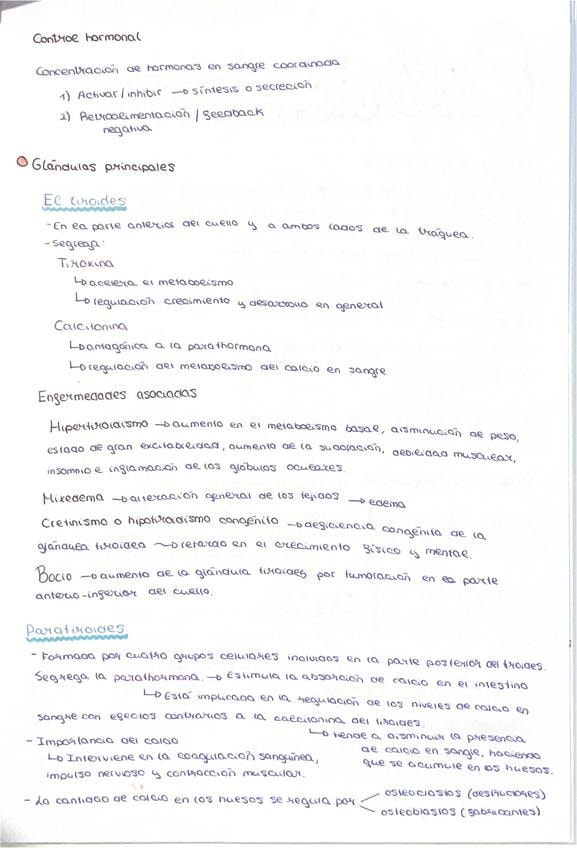 Control hormonal
Concentración de hormonas en sangre coordinada
1) Activar/inhibir → síntesis o secreción
2) Retroalimentación / feedback
negativa
Glándulas principales
El tiroides
- En la parte anterior del cuello y a ambos lados de la tráquea.
- Segrega:
Tiroxina
↳ acelera el metabolismo
↳ regulación crecimiento y desarrollo en general
Calcitonina
↳ antagónica a la parathormona
↳ regulación del metabolismo del calcio en sangre
Enfermedades asociadas
Hipertiroidismo → aumento en el metabolismo basal, disminución de peso,
estado de gran excitabilidad, aumento de la sudoración, debilidad muscular,
insomnio e inflamación de los glóbulos oculares.
Mixedema → alteración general de los tejidos → edema
Cretinismo o hipotiroidismo congénito → deficiencia congénita de la
glándula tiroidea → retardo en el crecimiento físico y mental.
Bocio → aumento de la glándula tiroides por tumoración en la parte
antero-inferior del cuello.
Paratiroides
- Formada por cuatro grupos celulares incluidos en la parte posterior del tiroides.
Segrega la parathormona. → Estimula la absorción de calcio en el intestino
↳ Está implicada en la regulación de los niveles de calcio en
sangre con efectos contrarios a la calcitonina del tiroides.
↳ tiende a disminuir la presencia
de calcio en sangre, haciendo
que se acumule en los huesos.
- Importancia del calcio
↳ Interviene en la coagulación sanguínea,
impulso nervioso y contracción muscular.
- La cantidad de calcio en los huesos se regula por
osteoclastos (destructores)
osteoblastos (fabricantes)